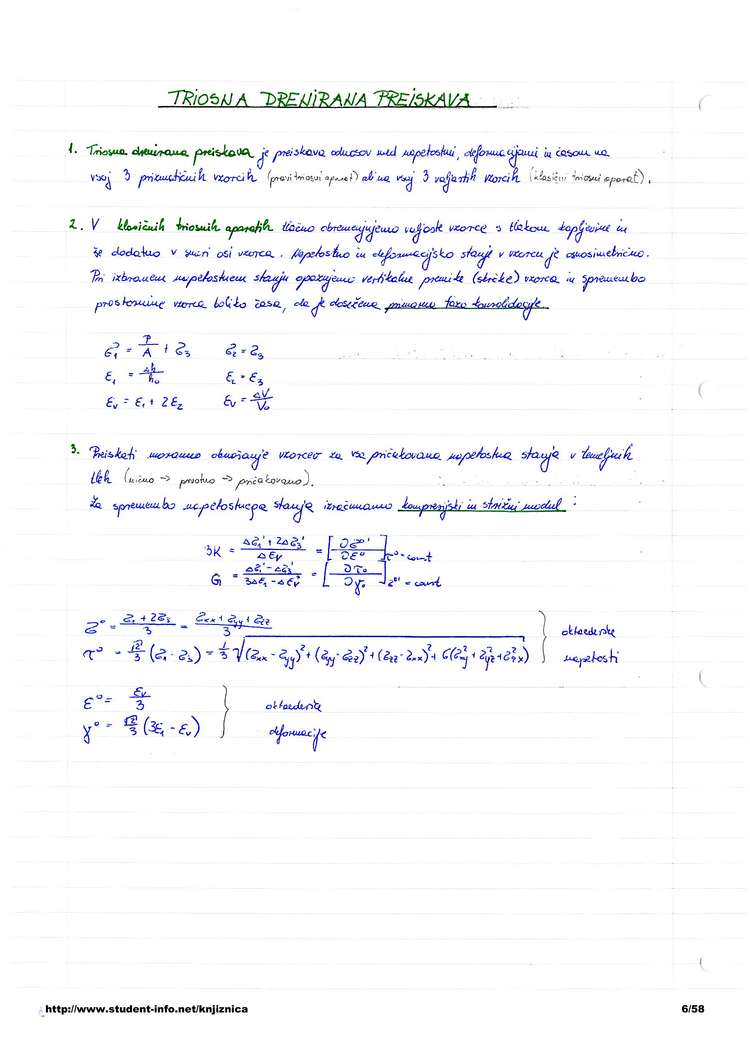 TRIOSNA DRENIRANA PREISKAVA
1. Triosna drenirana preiskava je preiskava odnosov med napetostmi, deformacijami in časom na
vsaj 3 prizmatičnih vzorcih (pravi triosni aparat) ali na vsaj 3 valjastih vzorcih (klasični triosni aparat).
2. V klasičnih triosnih aparatih tlačno obremenjujemo valjaste vzorce s tlakom kapljevine in
še dodatno v smeri osi vzorca. Napetostno in deformacijsko stanje v vzorcu je osnosimetrično.
Pri izbranem napetostnem stanju opazujemo vertikalne premike (skrčke) vzorca in spremembo
prostornine vzorca toliko časa, da je dosežena primarna faza konsolidacije.
σ₁ = P/A + σ₃ σ₂ = σ₃
ε₁ = Δh/h₀ ε₂ = ε₃
εᵥ = ε₁ + 2ε₂ εᵥ = ΔV/V₀
3. Preiskati moramo obnašanje vzorcev za vsa pričakovana napetostna stanja v temeljnih
tleh (nično → prvotno → pričakovano).
Za spremembo napetostnega stanja izračunamo kompresijski in strižni modul :
3K = (Δσ₁' + 2Δσ₃')/Δεᵥ = [∂σ°'/∂ε°] τ° = const
G = (Δσ₁' - Δσ₃')/(3Δε₁ - Δεᵥ) = [∂τ₀/∂γ₀] σ°' = const
σ° = (σ₁ + 2σ₃)/3 = (σxx + σyy + σzz)/3 oktaederske
τ° = √2/3 (σ₁ - σ₃) = 1/3 √((σxx - σyy)² + (σyy - σzz)² + (σzz - σxx)² + 6(σ²xy + σ²yz + σ²zx)) napetosti
ε° = εᵥ/3 oktaederske
γ° = √2/3 (3ε₁ - εᵥ) deformacije
http://www.student-info.net/knjiznica 6/58